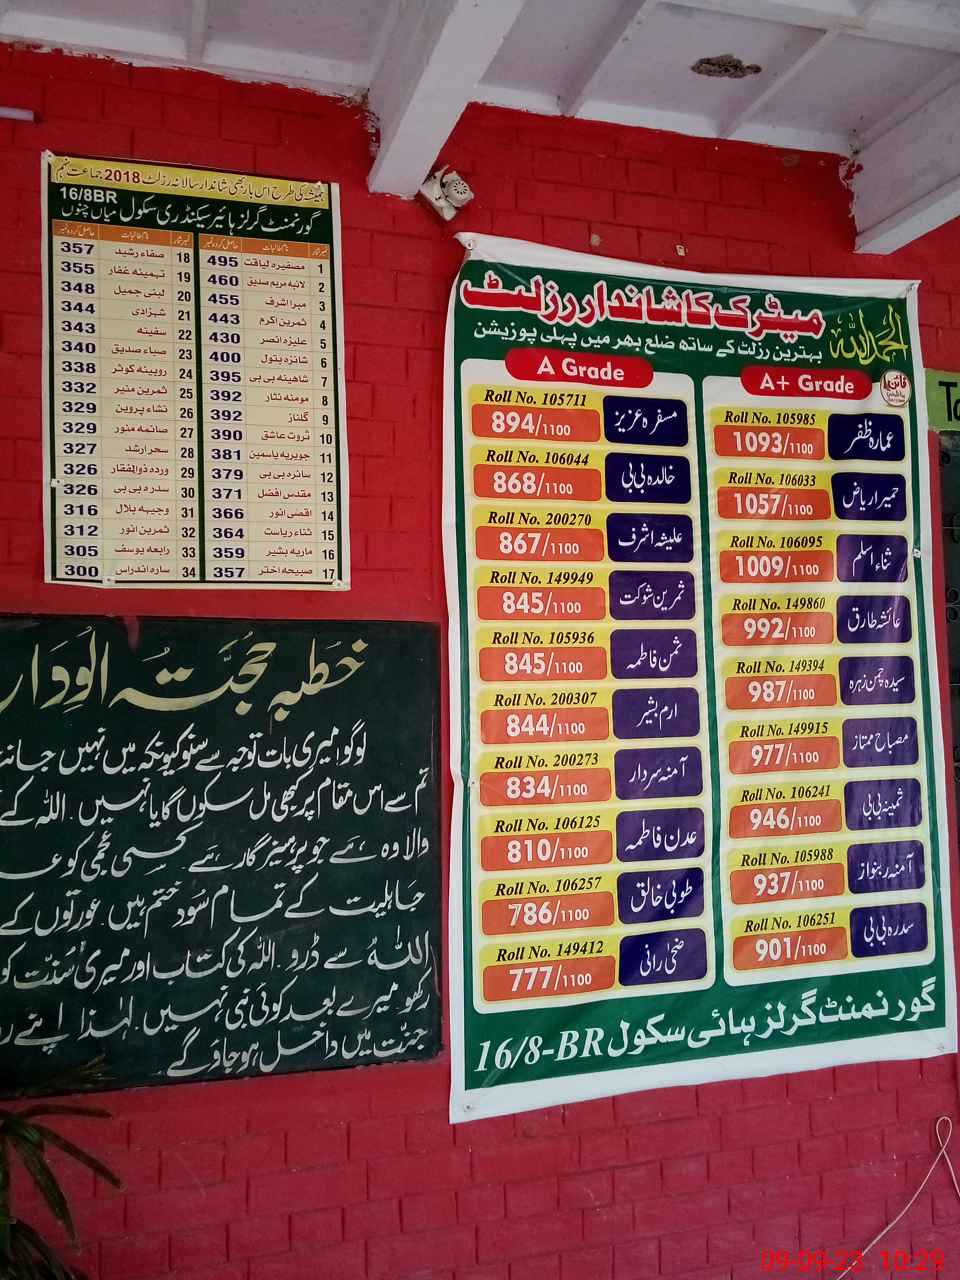 ہمیشہ کی طرح اس بار بھی شاندار سالانہ رزلٹ 2018 جماعت نہم
16/8BR
گورنمنٹ گرلز ہائیر سیکنڈری سکول میاں چنوں
نمبر شمار نام طالبات حاصل کردہ نمبر نمبر شمار نام طالبات حاصل کردہ نمبر
1 مصفیرہ لیاقت 495
2 لائبہ مریم صدیق 460
3 میرا اشرف 455
4 ثمرین اکرم 443
5 علیزہ انصر 430
6 شانزہ بتول 400
7 شاھینہ بی بی 395
8 مومنہ نثار 392
9 گلناز 392
10 ثروت عاشق 390
11 جویریہ یاسمین 381
12 سائرہ بی بی 379
13 مقدس افضل 371
14 اقصٰی انور 366
15 ثناء ریاست 364
16 ماریہ بشیر 359
17 صبیحہ اختر 357
18 صفاء رشید 357
19 تہمینہ غفار 355
20 لبنی جمیل 348
21 شہزادی 344
22 سفینہ 343
23 صباء صدیق 340
24 روبینہ کوثر 338
25 ثمرین منیر 332
26 نشاء پروین 329
27 صائمہ منور 329
28 سحر ارشد 327
29 وردہ ذوالفقار 326
30 سدرہ بی بی 326
31 وجیہہ بلال 316
32 ثمرین انور 312
33 رابعہ یوسف 305
34 سارہ اندراس 300
الحمدللہ
میٹرک کا شاندار رزلٹ
بہترین رزلٹ کے ساتھ ضلع بھر میں پہلی پوزیشن
A Grade
Roll No. 105711
مسفرہ عزیز 894/1100
Roll No. 106044
خالدہ بی بی 868/1100
Roll No. 200270
علیشہ اشرف 867/1100
Roll No. 149949
ثمرین شوکت 845/1100
Roll No. 105936
ثمن فاطمہ 845/1100
Roll No. 200307
ارم بشیر 844/1100
Roll No. 200273
آمنہ سردار 834/1100
Roll No. 106125
عدن فاطمہ 810/1100
Roll No. 106257
طوبی خالق 786/1100
Roll No. 149412
ضحٰی رانی 777/1100
A+ Grade
Roll No. 105985
عمارہ ظفر 1093/1100
Roll No. 106033
حمیرا ریاض 1057/1100
Roll No. 106095
ثناء اسلم 1009/1100
Roll No. 149860
عائشہ طارق 992/1100
Roll No. 149394
سیدہ چمن زہرہ 987/1100
Roll No. 149915
مصباح ممتاز 977/1100
Roll No. 106241
ثمینہ بی بی 946/1100
Roll No. 105988
آمنہ ربنواز 937/1100
Roll No. 106251
سدرہ بی بی 901/1100
گورنمنٹ گرلز ہائی سکول 16/8-BR
خطبہ حجتہ الودا
لوگو! میری بات توجہ سے سنو کیونکہ میں نہیں جانتا
تم سے اس مقام پر کبھی مل سکوں گا یا نہیں. اللہ کے
والا وہ ہے جو پرہیزگار ہے کسی عجمی کو
جاہلیت کے تمام سود ختم ہیں. عورتوں کے
اللہ سے ڈرو. اللہ کی کتاب اور میری سُنّت کو
رکھو. میرے بعد کوئی نبی نہیں. لہٰذا اپنے
جنّت میں داخل ہو جاؤ گے
09-09-23 10:29